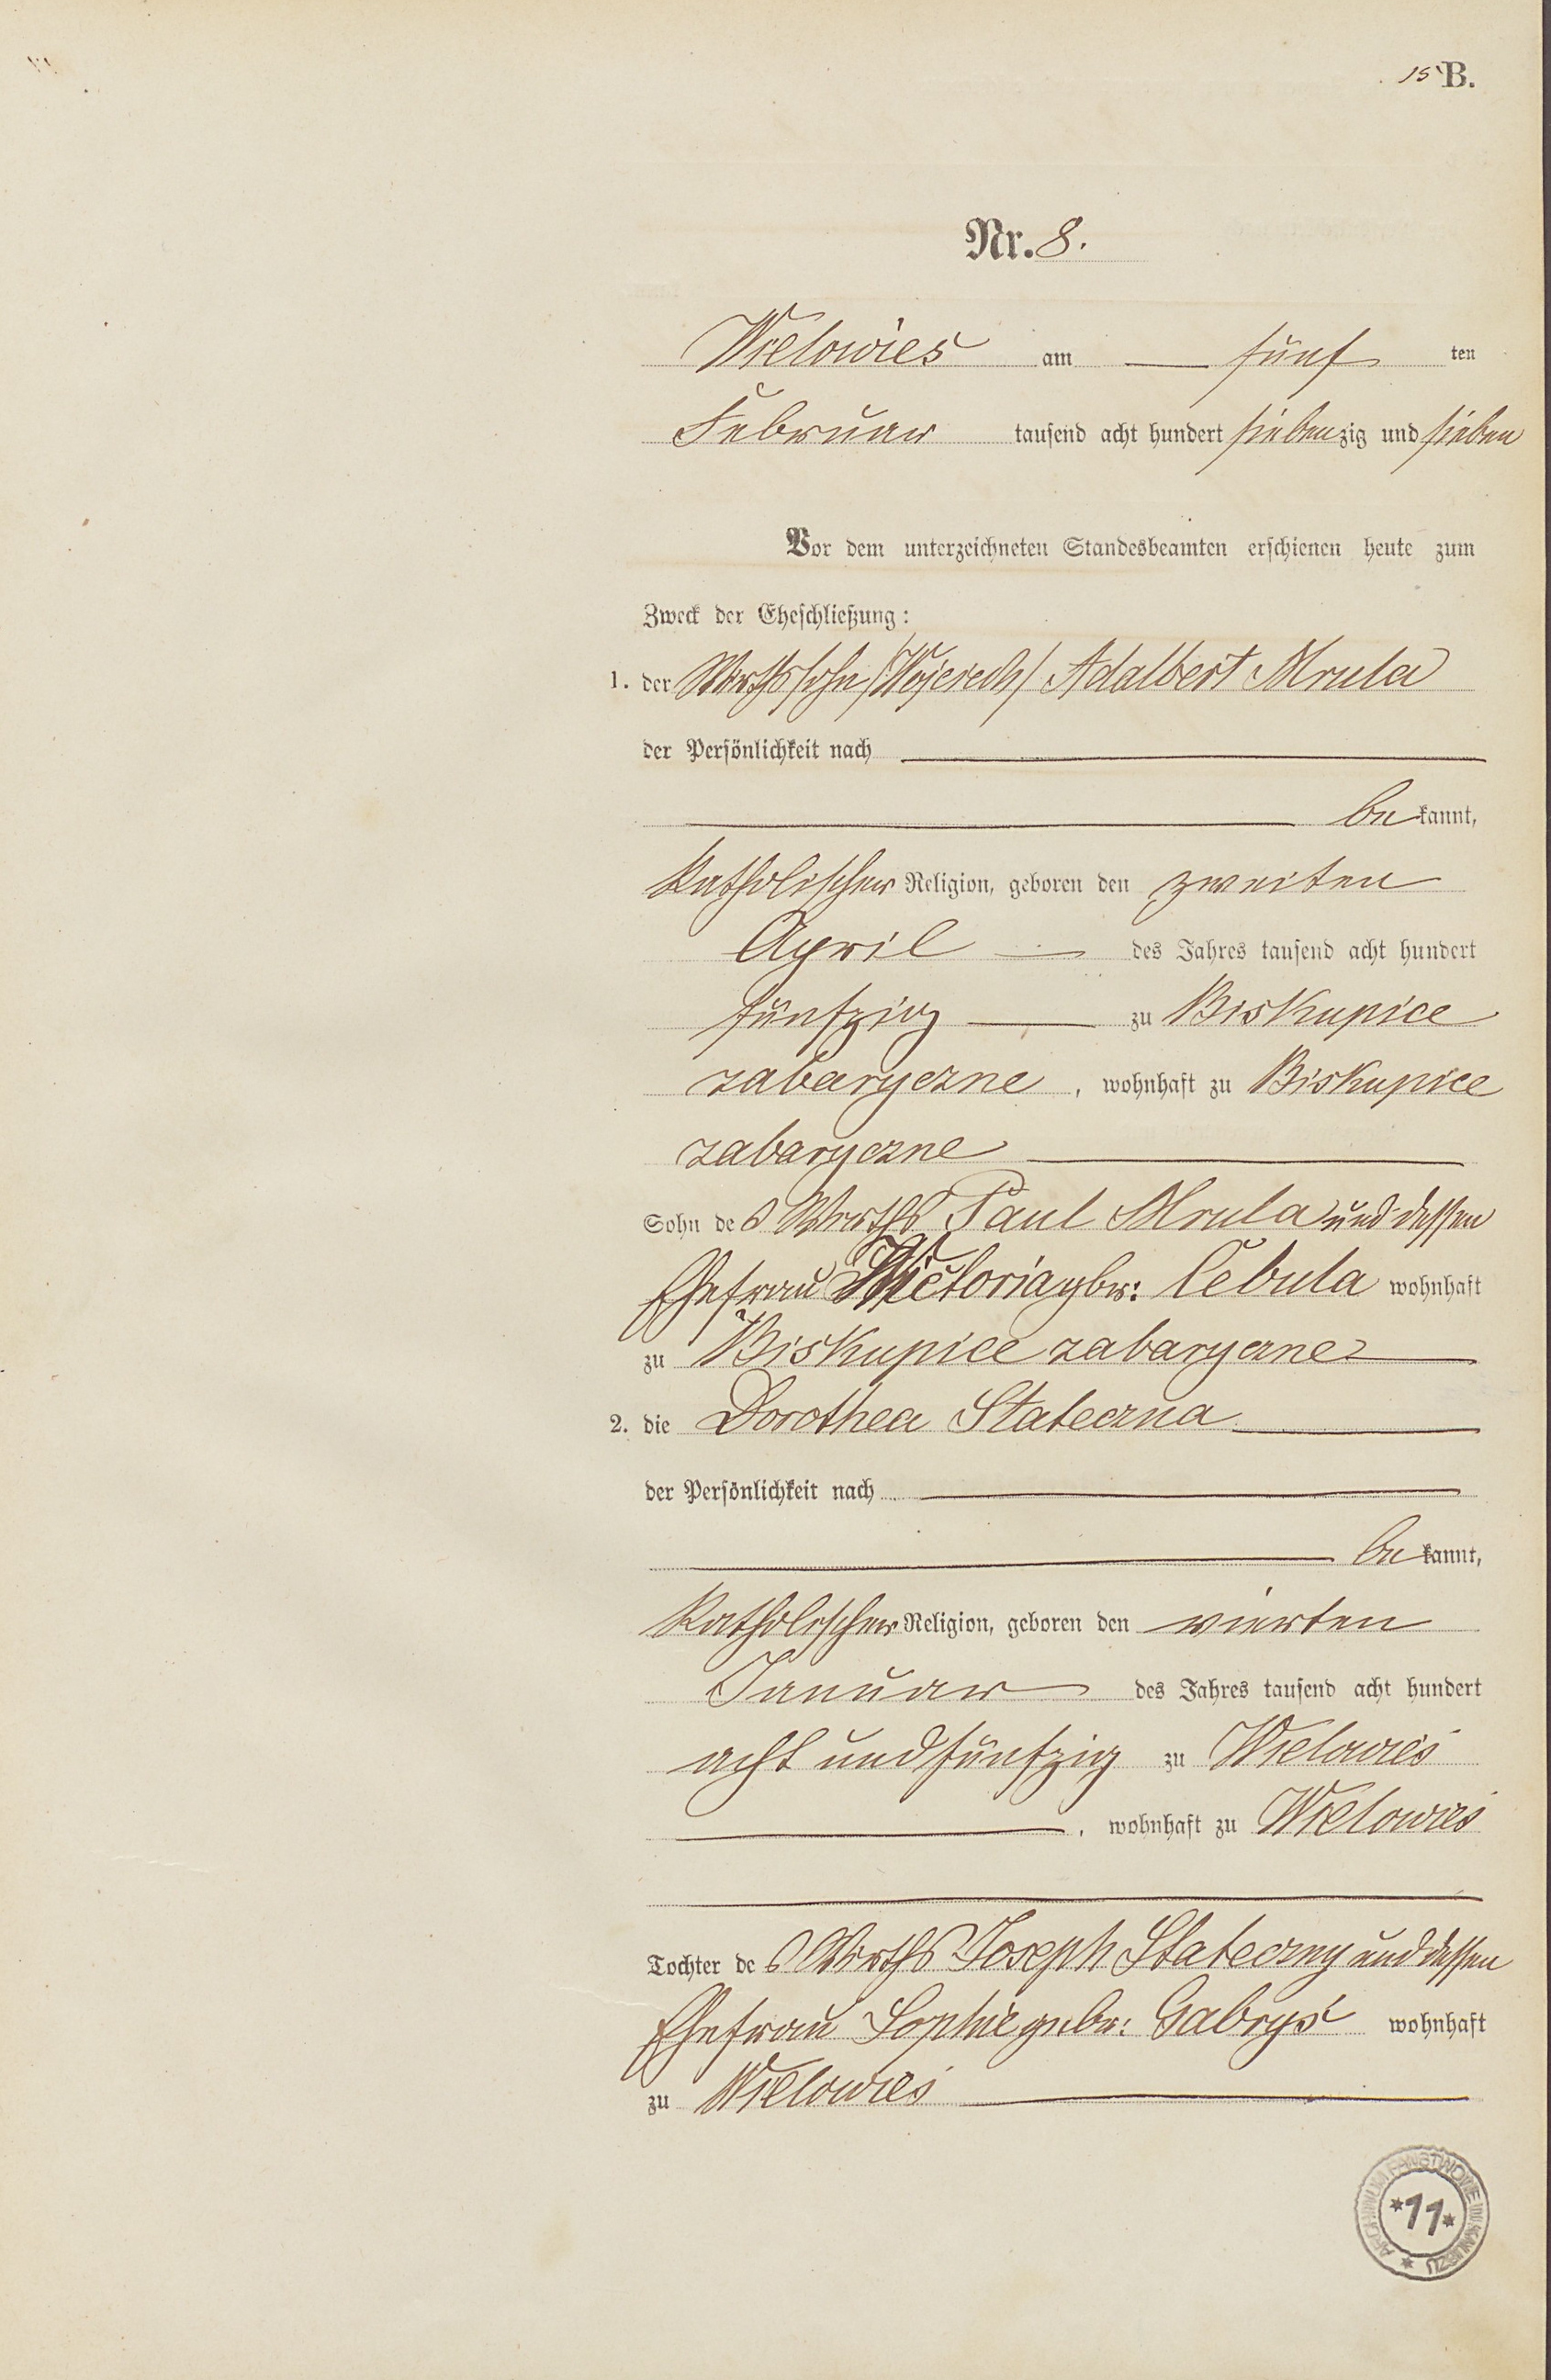 15 B.
Nr. 8.
Wielowieś am — fünf ten
Februar tausend acht hundert siebenzig und sieben
Vor dem unterzeichneten Standesbeamten erschienen heute zum
Zweck der Eheschließung:
1. der Wirthssohn /Wojciech/ Adalbert Mrula
der Persönlichkeit nach
bekannt,
katholischer Religion, geboren den zweiten
April — des Jahres tausend acht hundert
fünfzig — zu Biskupice
zabaryczne, wohnhaft zu Biskupice
zabaryczne
Sohn des Wirths Paul Mrula und dessen
Ehefrau Victoria gebr: Cebula wohnhaft
zu Biskupice zabaryczne
2. die Dorothea Stateczna
der Persönlichkeit nach
bekannt,
katholischer Religion, geboren den vierten
Januar des Jahres tausend acht hundert
acht und fünfzig zu Wielowieś
, wohnhaft zu Wielowieś
Tochter des Wirths Joseph Stateczny und dessen
Ehefrau Sophie gebr: Gabryś wohnhaft
zu Wielowieś
ARCHIWUM PAŃSTWOWE W KALISZU
*11*